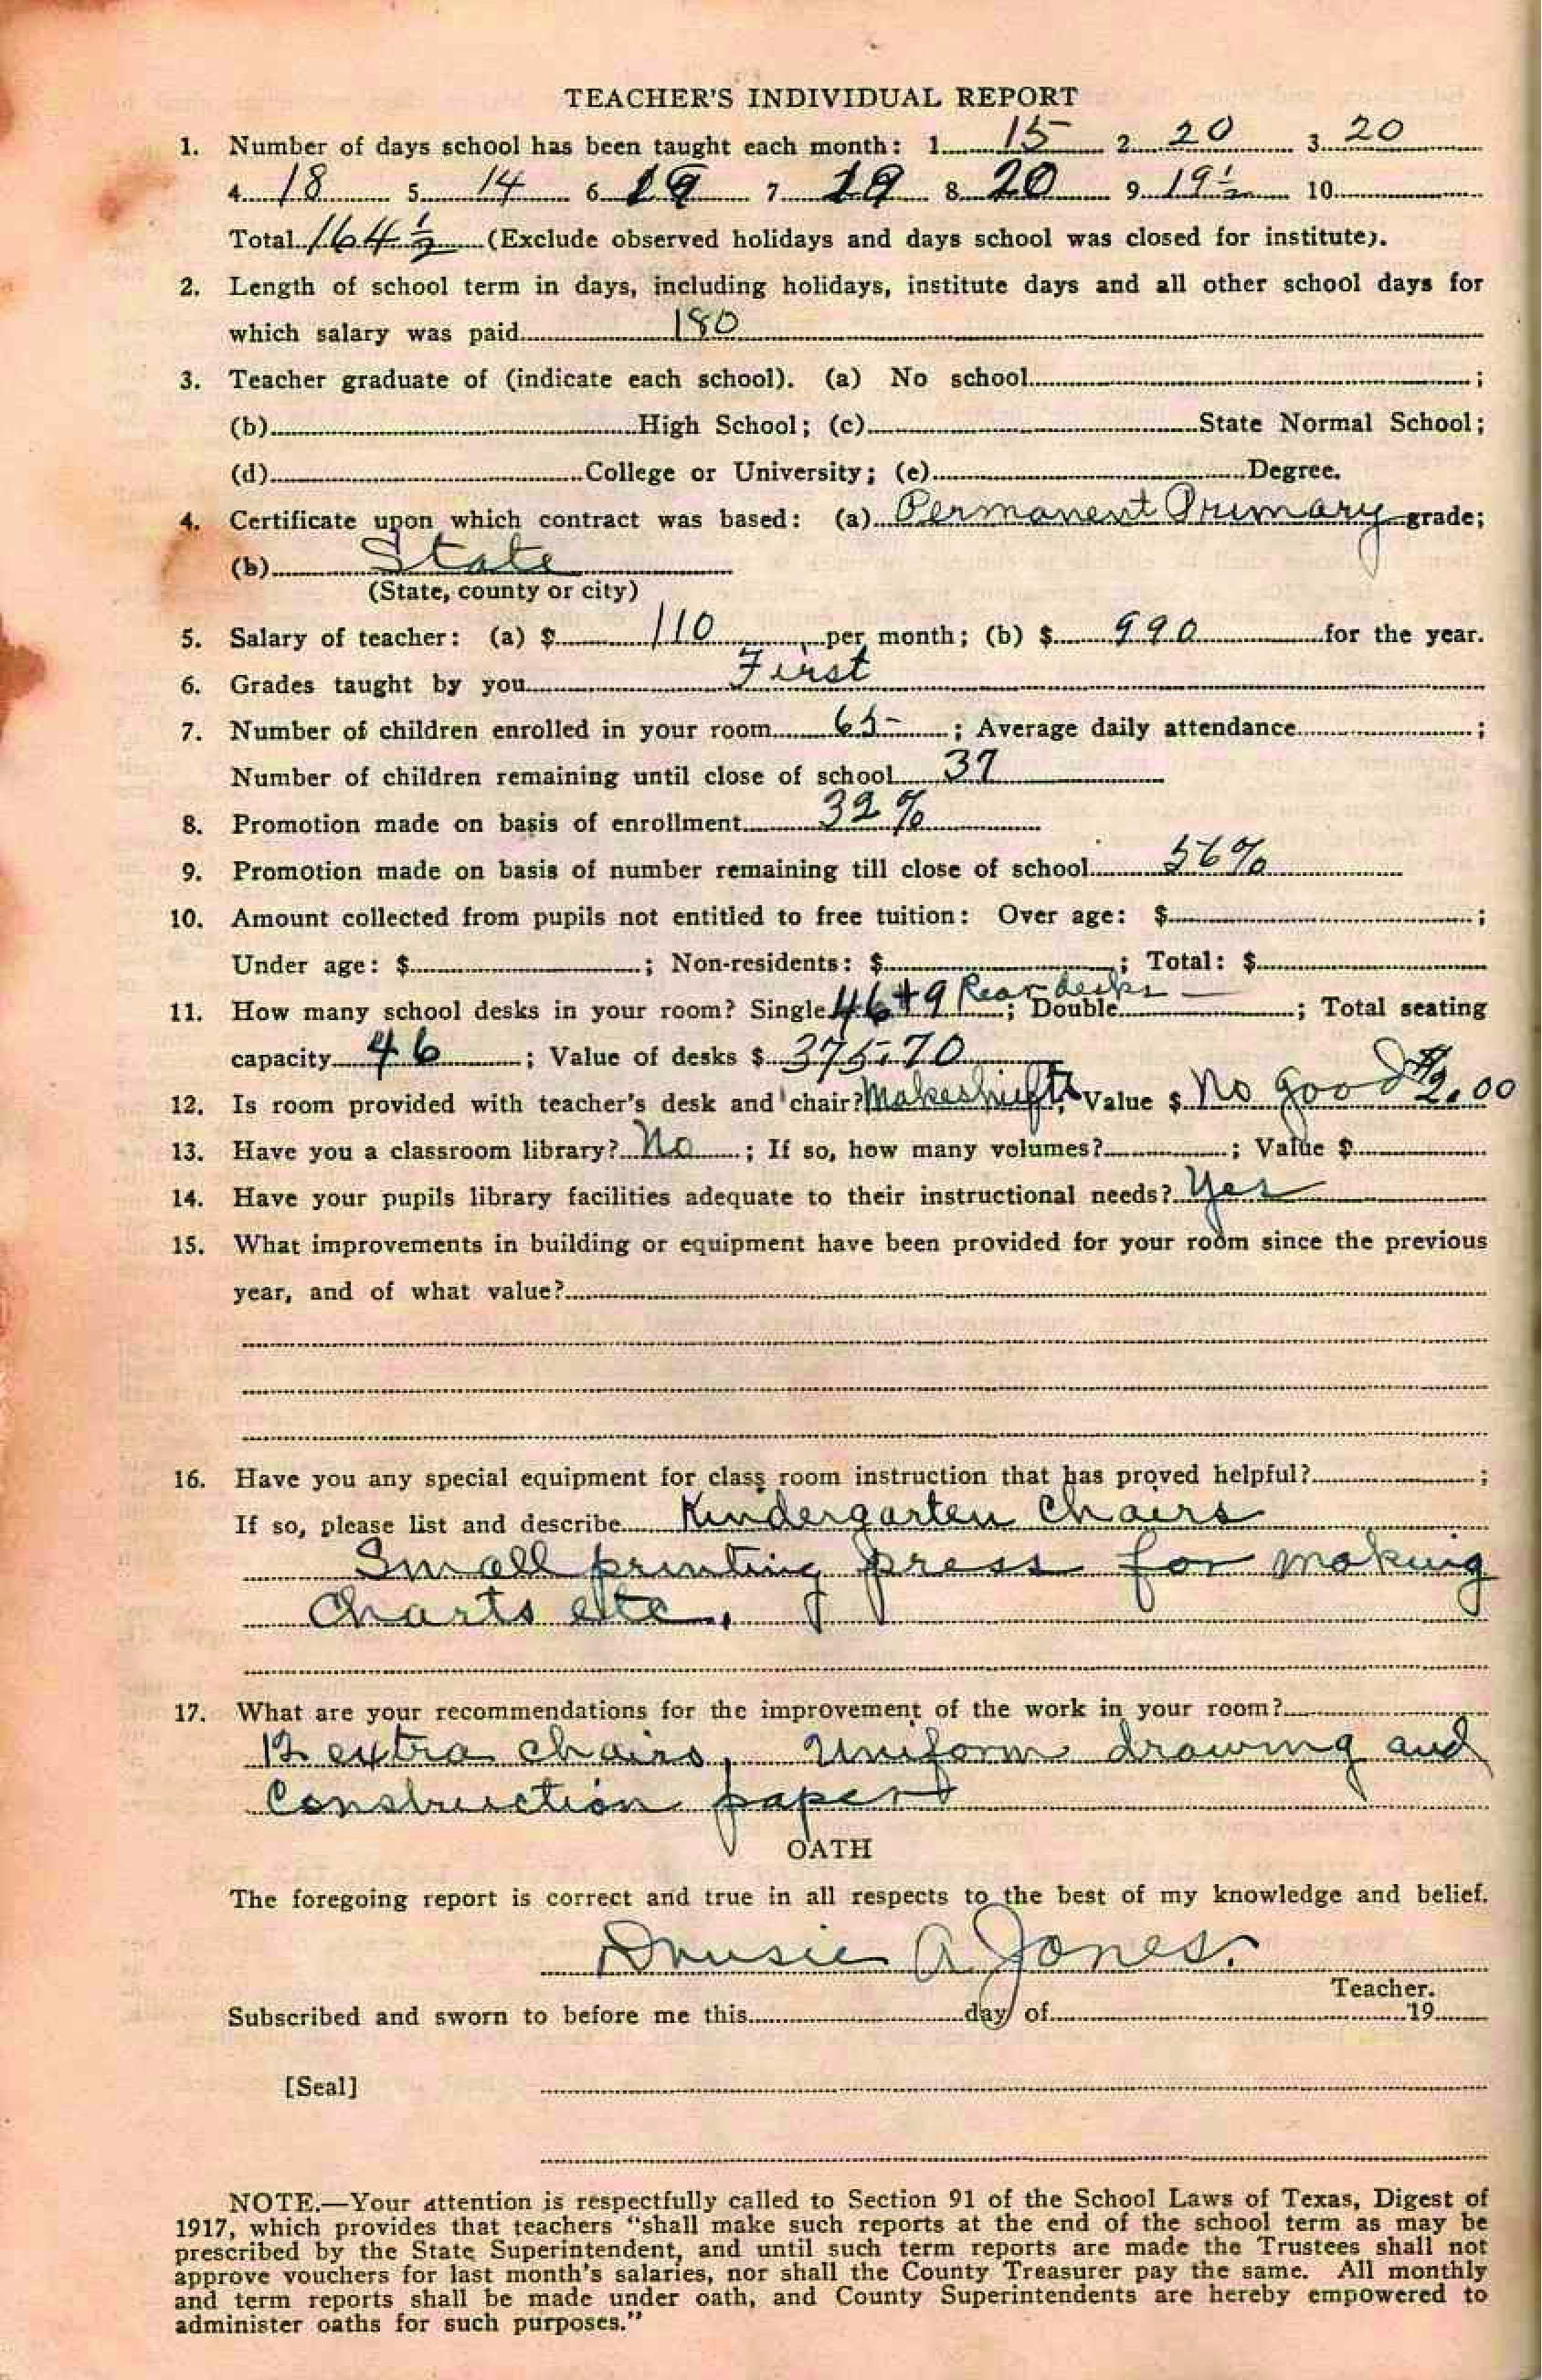 TEACHER'S INDIVIDUAL REPORT
1. Number of days school has been taught each month: 1 15 2 20 3 20
4 18 5 14 6 19 7 19 8 20 9 19½ 10
Total 164½ (Exclude observed holidays and days school was closed for institute).
2. Length of school term in days, including holidays, institute days and all other school days for
which salary was paid 180
3. Teacher graduate of (indicate each school). (a) No school ;
(b) High School; (c) State Normal School;
(d) College or University; (e) Degree.
4. Certificate upon which contract was based: (a) Permanent Primary grade;
(b) State
(State, county or city)
5. Salary of teacher: (a) $ 110 per month; (b) $ 990 for the year.
6. Grades taught by you First
7. Number of children enrolled in your room 65 ; Average daily attendance ;
Number of children remaining until close of school 37
8. Promotion made on basis of enrollment 32%
9. Promotion made on basis of number remaining till close of school 56%
10. Amount collected from pupils not entitled to free tuition: Over age: $ ;
Under age: $ ; Non-residents: $ ; Total: $
11. How many school desks in your room? Single 46+9 Rear desks ; Double — ; Total seating
capacity 46 ; Value of desks $ 375.70
12. Is room provided with teacher's desk and chair? Makeshift ; Value $ No good $2.00
13. Have you a classroom library? No ; If so, how many volumes? ; Value $
14. Have your pupils library facilities adequate to their instructional needs? Yes
15. What improvements in building or equipment have been provided for your room since the previous
year, and of what value?
16. Have you any special equipment for class room instruction that has proved helpful? ;
If so, please list and describe Kindergarten Chairs
Small printing press for making
Charts etc.
17. What are your recommendations for the improvement of the work in your room?
12 extra chairs, Uniform drawing and
Construction paper
OATH
The foregoing report is correct and true in all respects to the best of my knowledge and belief.
Drusie A Jones.
Teacher.
Subscribed and sworn to before me this day of 19
[Seal]
NOTE.—Your attention is respectfully called to Section 91 of the School Laws of Texas, Digest of
1917, which provides that teachers "shall make such reports at the end of the school term as may be
prescribed by the State Superintendent, and until such term reports are made the Trustees shall not
approve vouchers for last month's salaries, nor shall the County Treasurer pay the same. All monthly
and term reports shall be made under oath, and County Superintendents are hereby empowered to
administer oaths for such purposes."